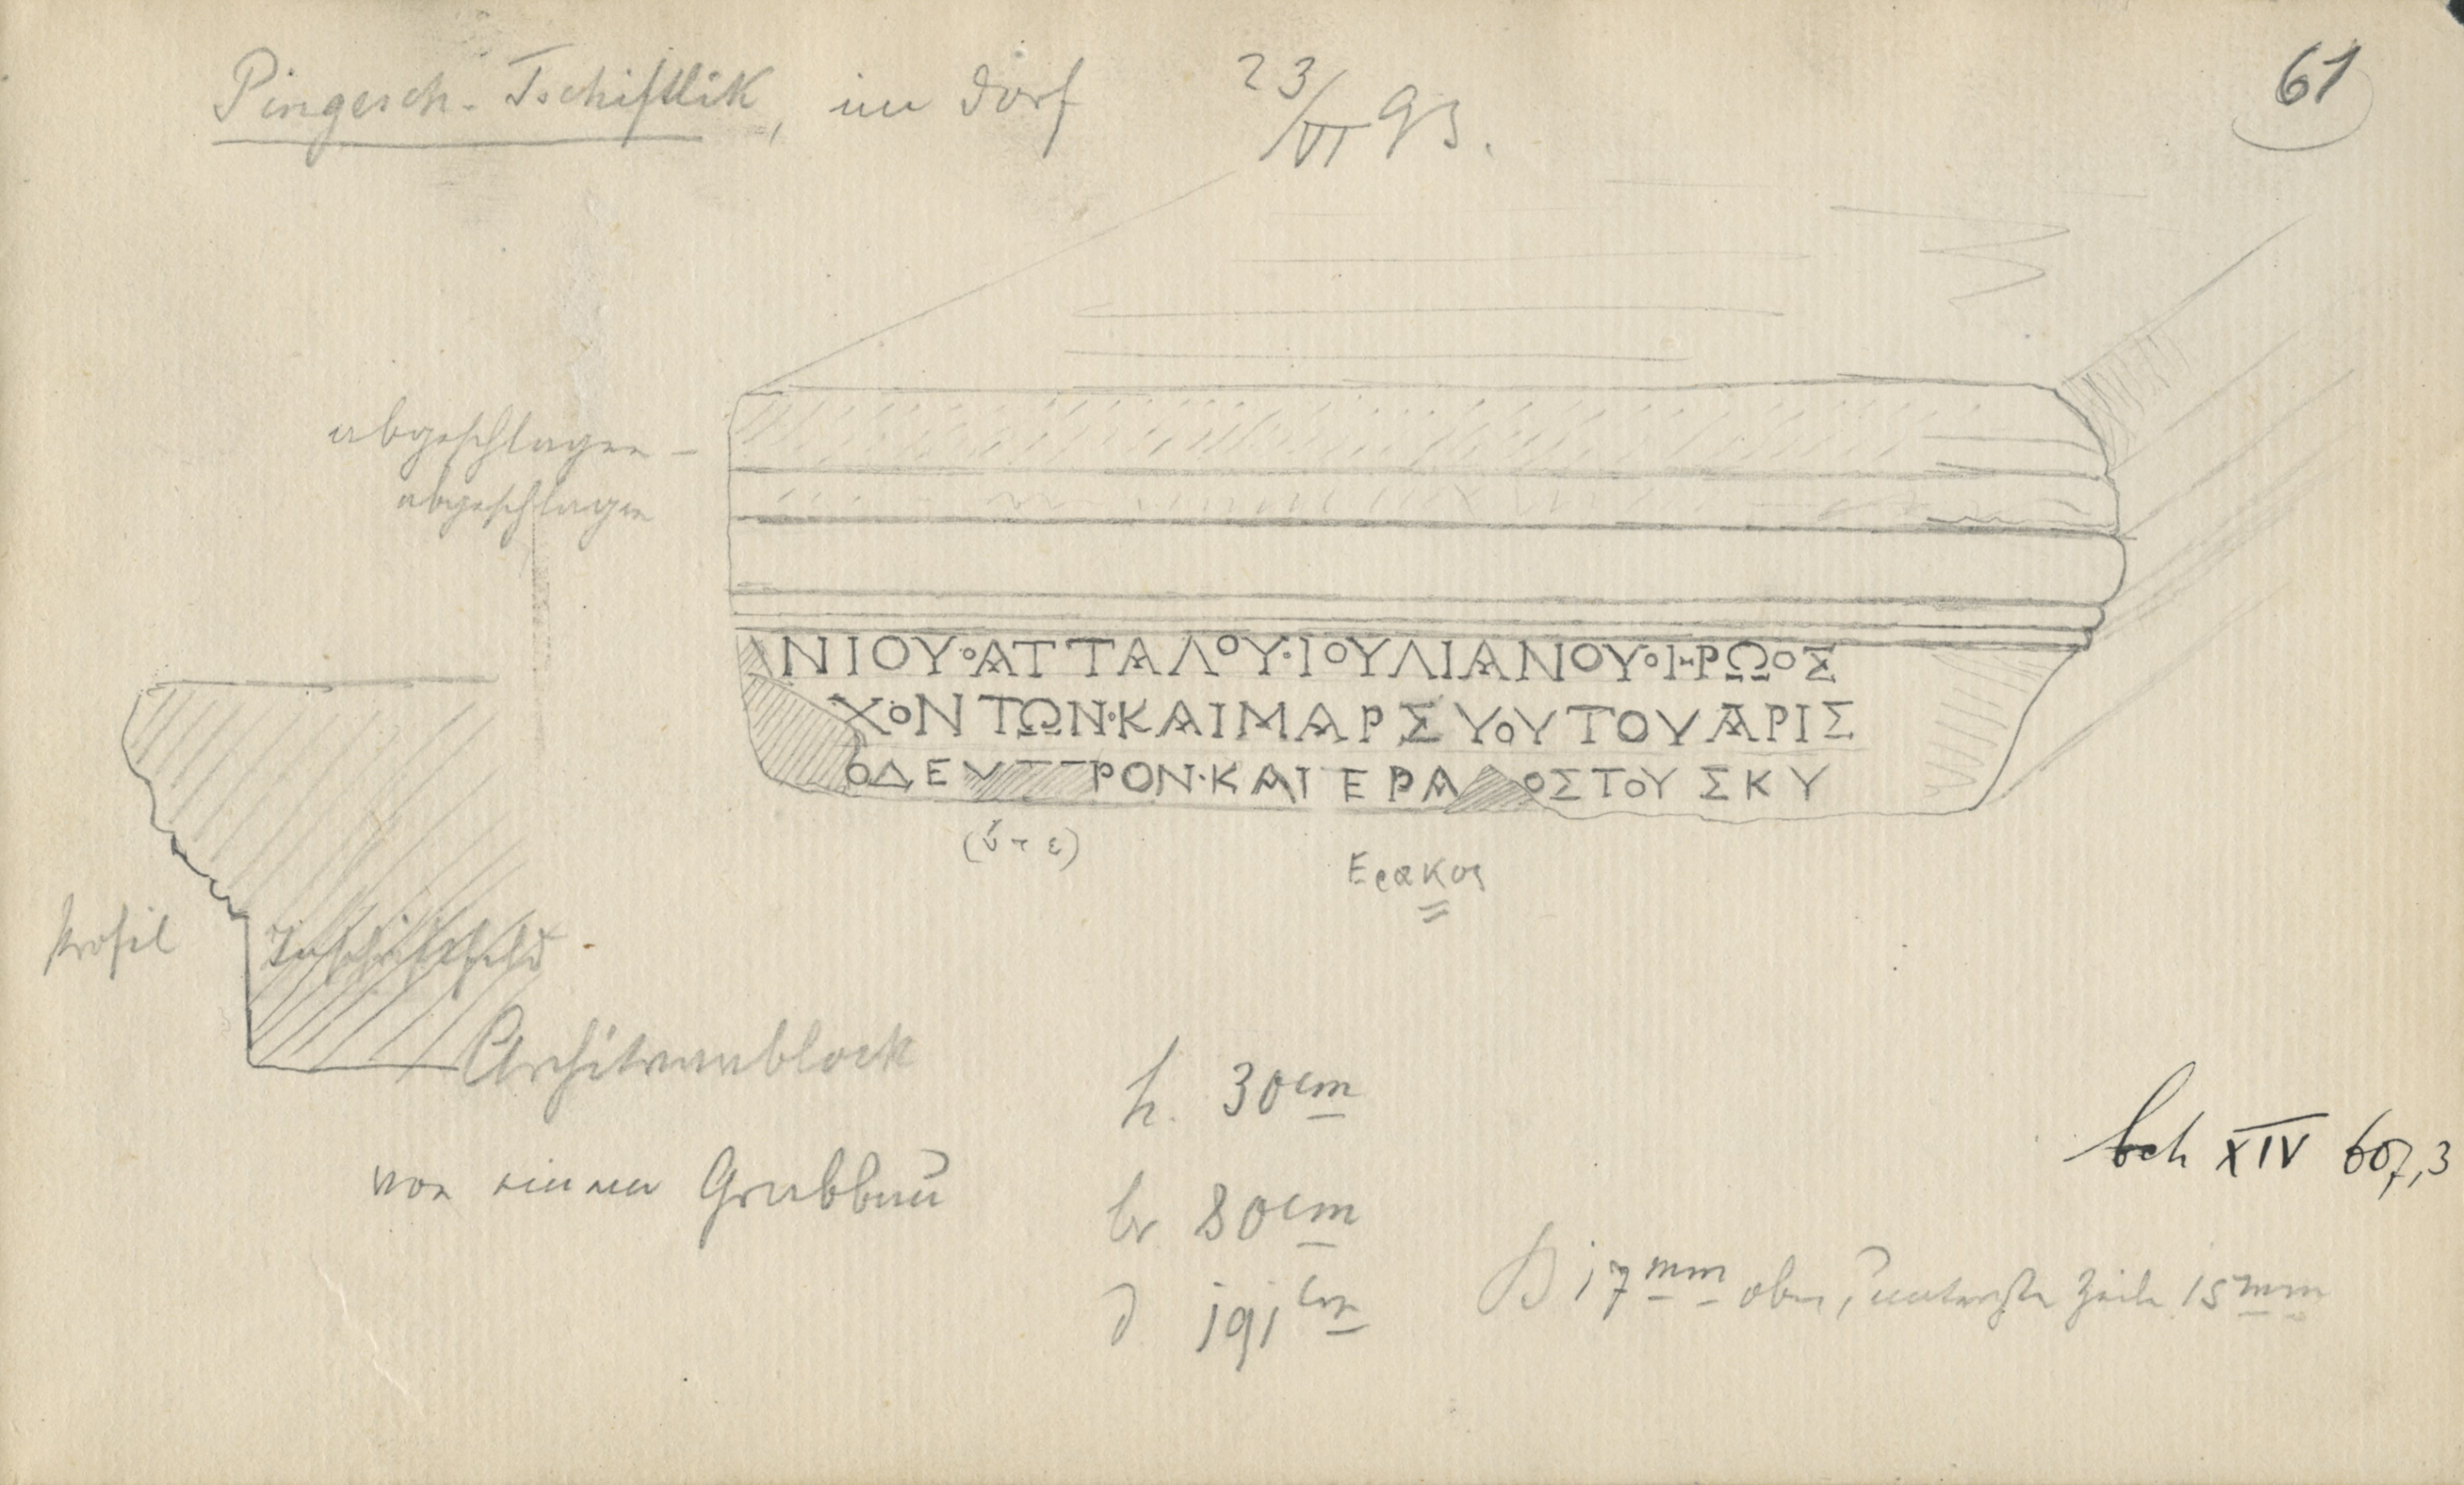 Pingesch-Tschiftlik, im Dorf 23/VI 93.
61
abgeschlagen –
abgeschlagen
ΝΙΟΥ∘ΑΤΤΑΛΟΥ·ΙΟΥΛΙΑΝΟΥ∘ΗΡΩΟΣ
ΧΟΝΤΩΝ·ΚΑΙΜΑΡΣΥΟΥΤΟΥΑΡΙΣ
ΟΔΕΥΤΕΡΟΝ·ΚΑΙΤΕΡΑ ΟΣΤΟΥΣΚΥ
(ύτε)
Ερακος
Profil
Inschriftfeld
Architravblock
von einem Grabbau
h. 30cm
br 80cm
d 191cm
bch XIV 607,3
B 17mm oben, unterste Zeile 15mm